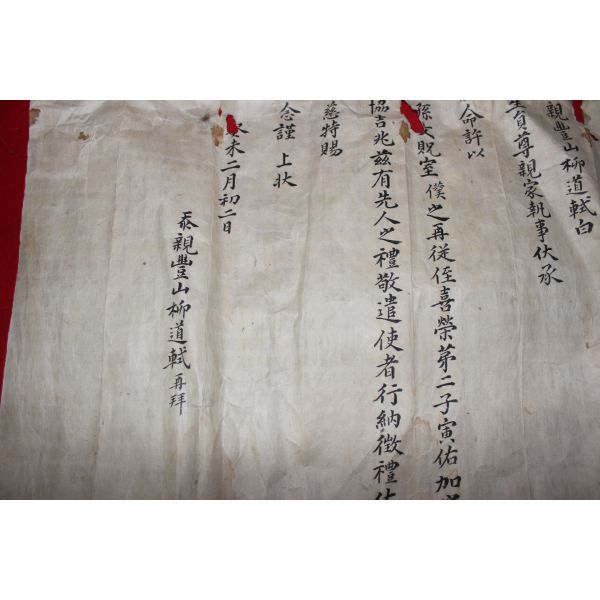 親豊山柳道軾白
貟尊親家執事伏承
命許以
孫女貺室僕之再從侄喜榮第二子寅佑加
協吉兆兹有先人之禮敬遣使者行納徵禮伏
慈特賜
念謹 上狀
癸未二月初二日
忝親豊山柳道軾再拜